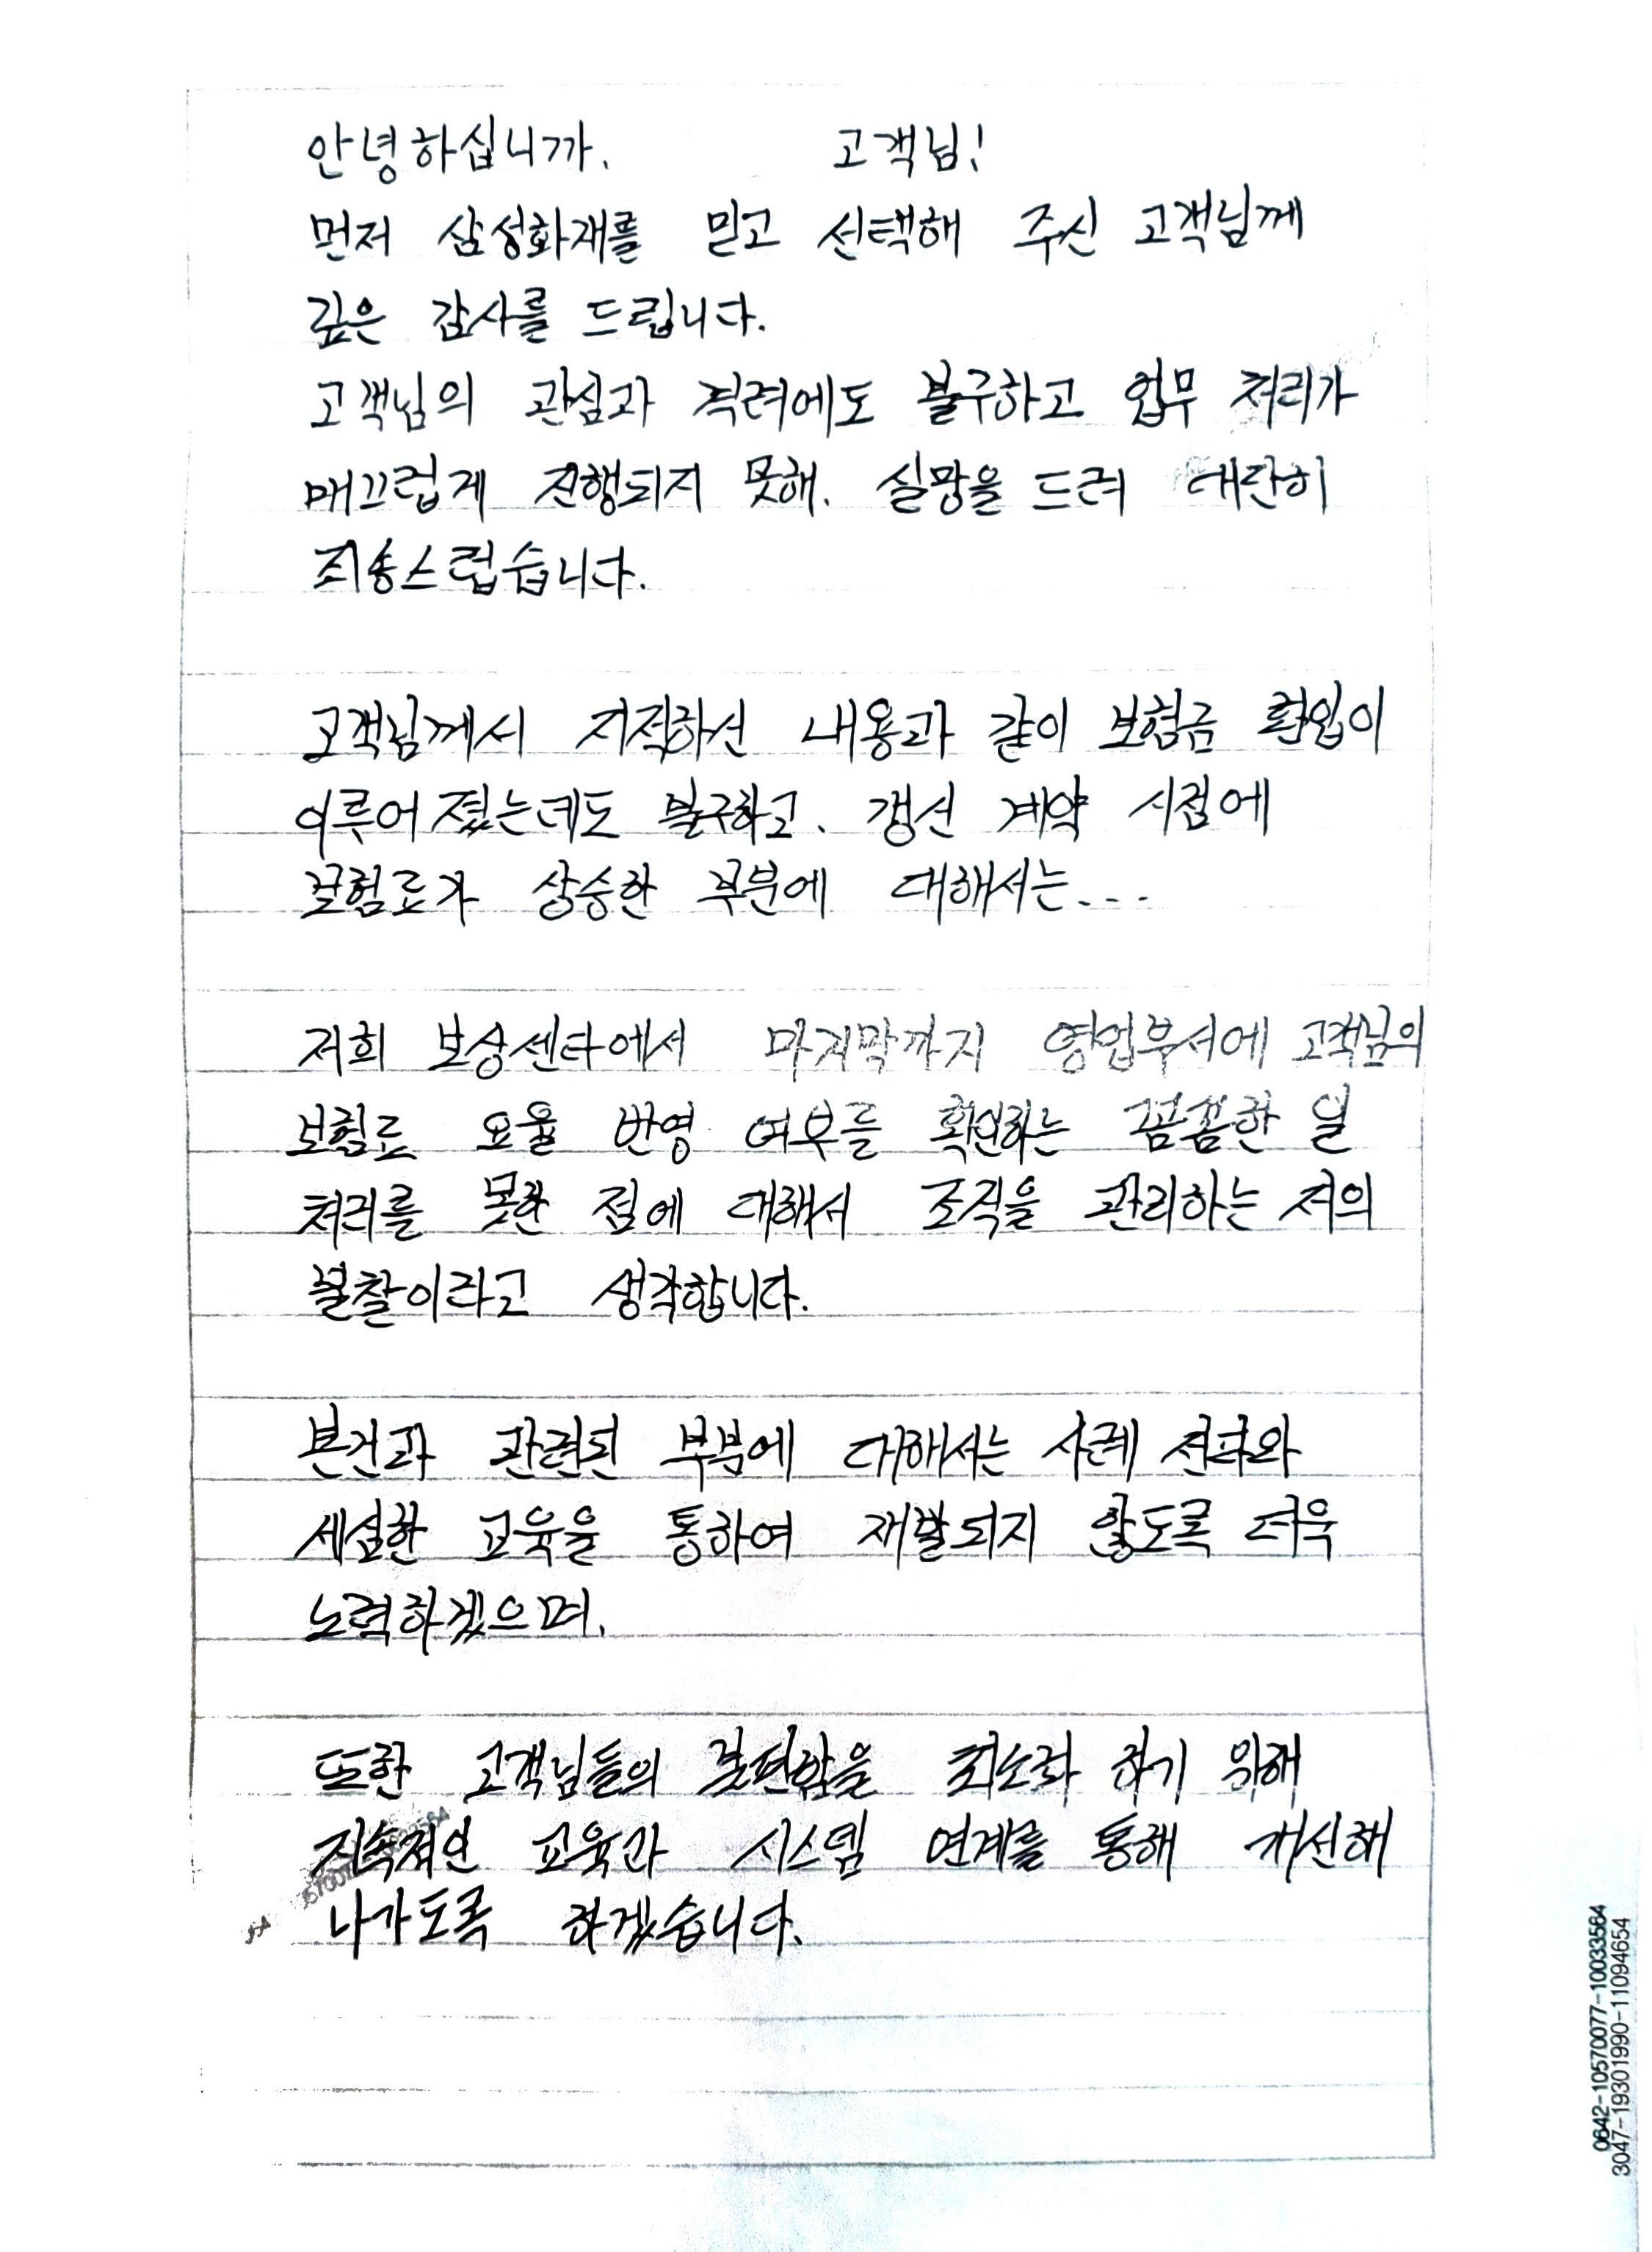 안녕하십니까. 고객님!
먼저 삼성화재를 믿고 선택해 주신 고객님께
깊은 감사를 드립니다.
고객님의 관심과 격려에도 불구하고 업무 처리가
매끄럽게 진행되지 못해. 실망을 드려 대단히
죄송스럽습니다.
고객님께서 지적하신 내용과 같이 보험금 환입이
이루어 졌는데도 불구하고. 갱신 계약 시점에
보험료가 상승한 부분에 대해서는...
저희 보상센타에서 마지막까지 영업부서에 고객님의
보험료 요율 반영 여부를 확인하는 꼼꼼한 일
처리를 못한 점에 대해서 조직을 관리하는 저의
불찰이라고 생각합니다.
본건과 관련된 부분에 대해서는 사례 전파와
세심한 교육을 통하여 재발되지 않도록 더욱
노력하겠으며.
또한 고객님들의 불편함을 최소화 하기 위해
지속적인 교육과 시스템 연계를 통해 개선해
나가도록 하겠습니다.
0642-10570077-10033564
3047-19301990-11094654